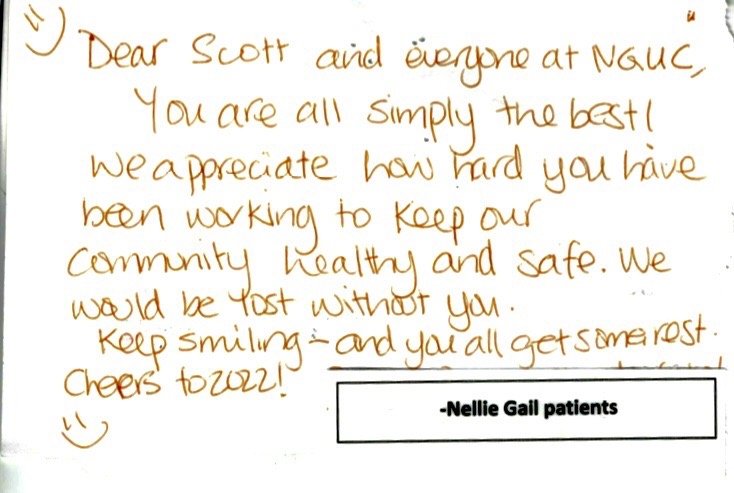 Dear Scott and everyone at NGUC,
You are all simply the best!
We appreciate how hard you have
been working to keep our
community healthy and safe. We
would be lost without you.
Keep smiling - and you all get some rest.
Cheers to 2022!
-Nellie Gail patients